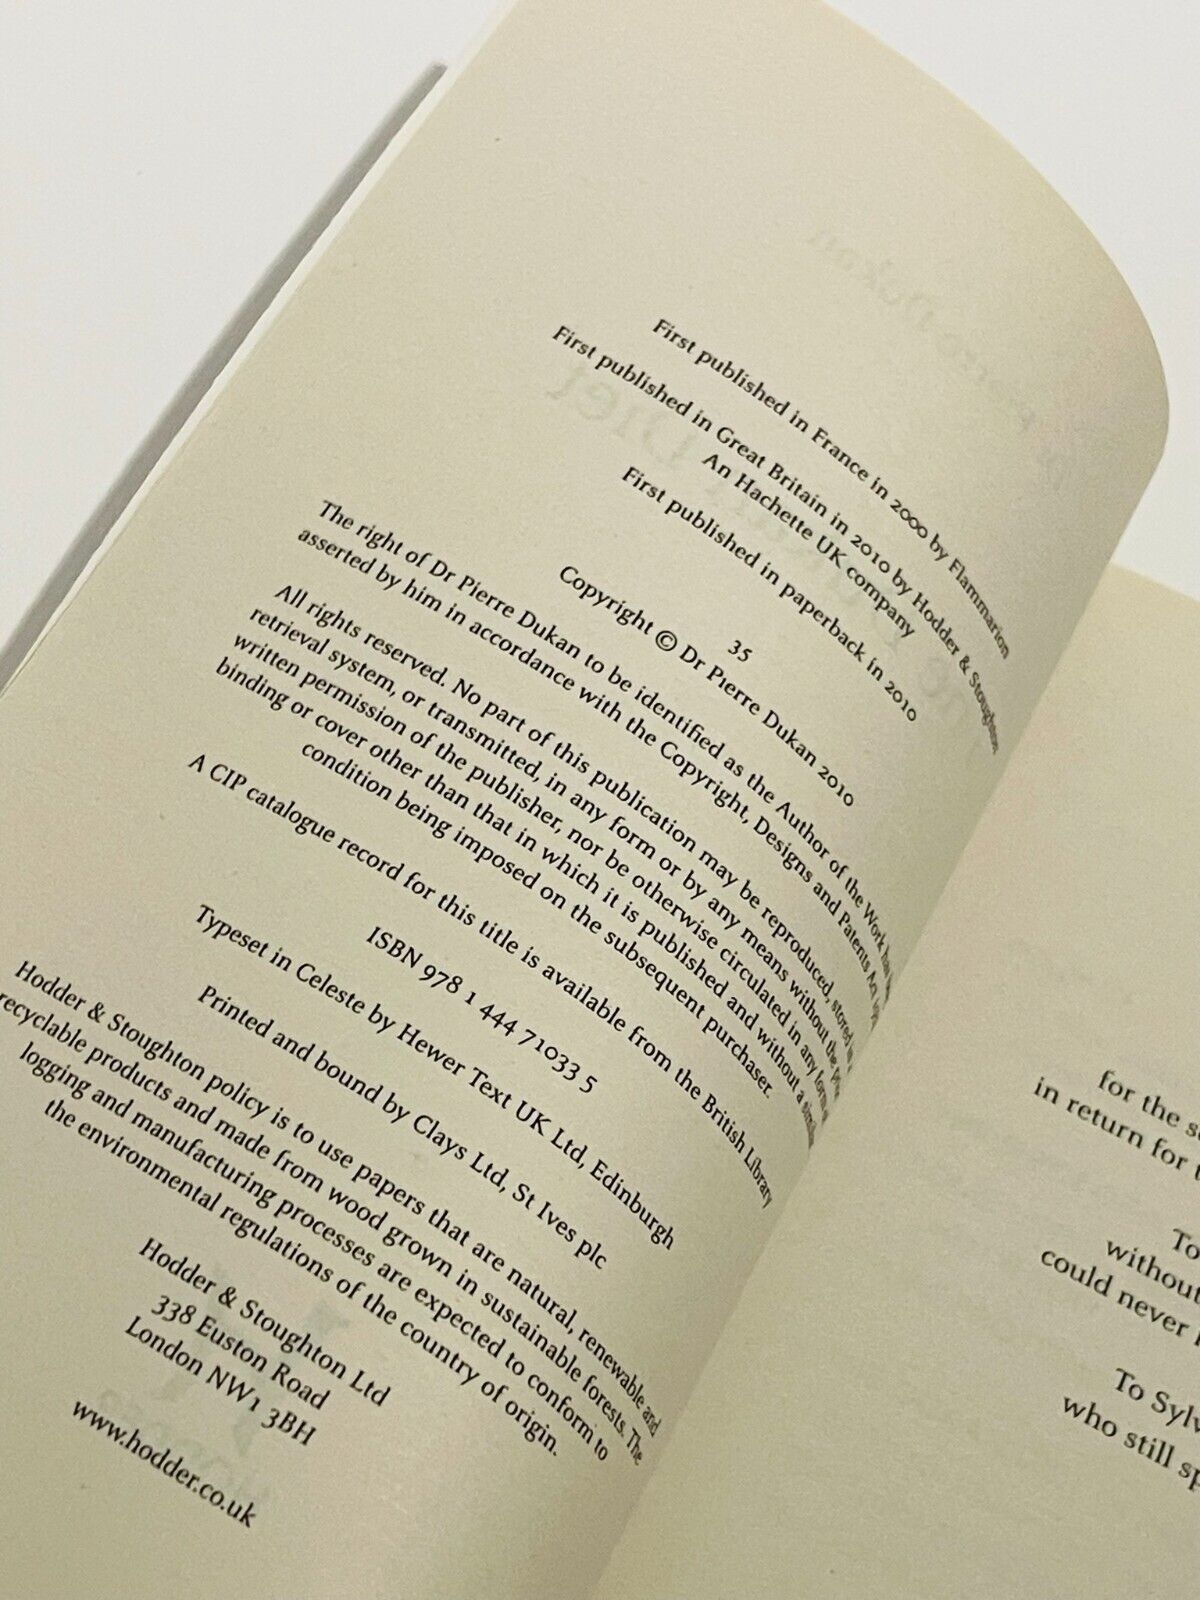 First published in France in 2000 by Flammarion
First published in Great Britain in 2010 by Hodder & Stoughton
An Hachette UK company
First published in paperback in 2010
35
Copyright © Dr Pierre Dukan 2010
The right of Dr Pierre Dukan to be identified as the Author of the Work has
asserted by him in accordance with the Copyright, Designs and Patents
All rights reserved. No part of this publication may be reproduced, stored
retrieval system, or transmitted, in any form or by any means without the
written permission of the publisher, nor be otherwise circulated in any form
binding or cover other than that in which it is published and without a
condition being imposed on the subsequent purchaser.
A CIP catalogue record for this title is available from the British Library
ISBN 978 1 444 71033 5
Typeset in Celeste by Hewer Text UK Ltd, Edinburgh
Printed and bound by Clays Ltd, St Ives plc
Hodder & Stoughton policy is to use papers that are natural, renewable and
recyclable products and made from wood grown in sustainable forests. The
logging and manufacturing processes are expected to conform to
the environmental regulations of the country of origin.
Hodder & Stoughton Ltd
338 Euston Road
London NW1 3BH
www.hodder.co.uk
for the
in return for
To
without
could never
To
who still